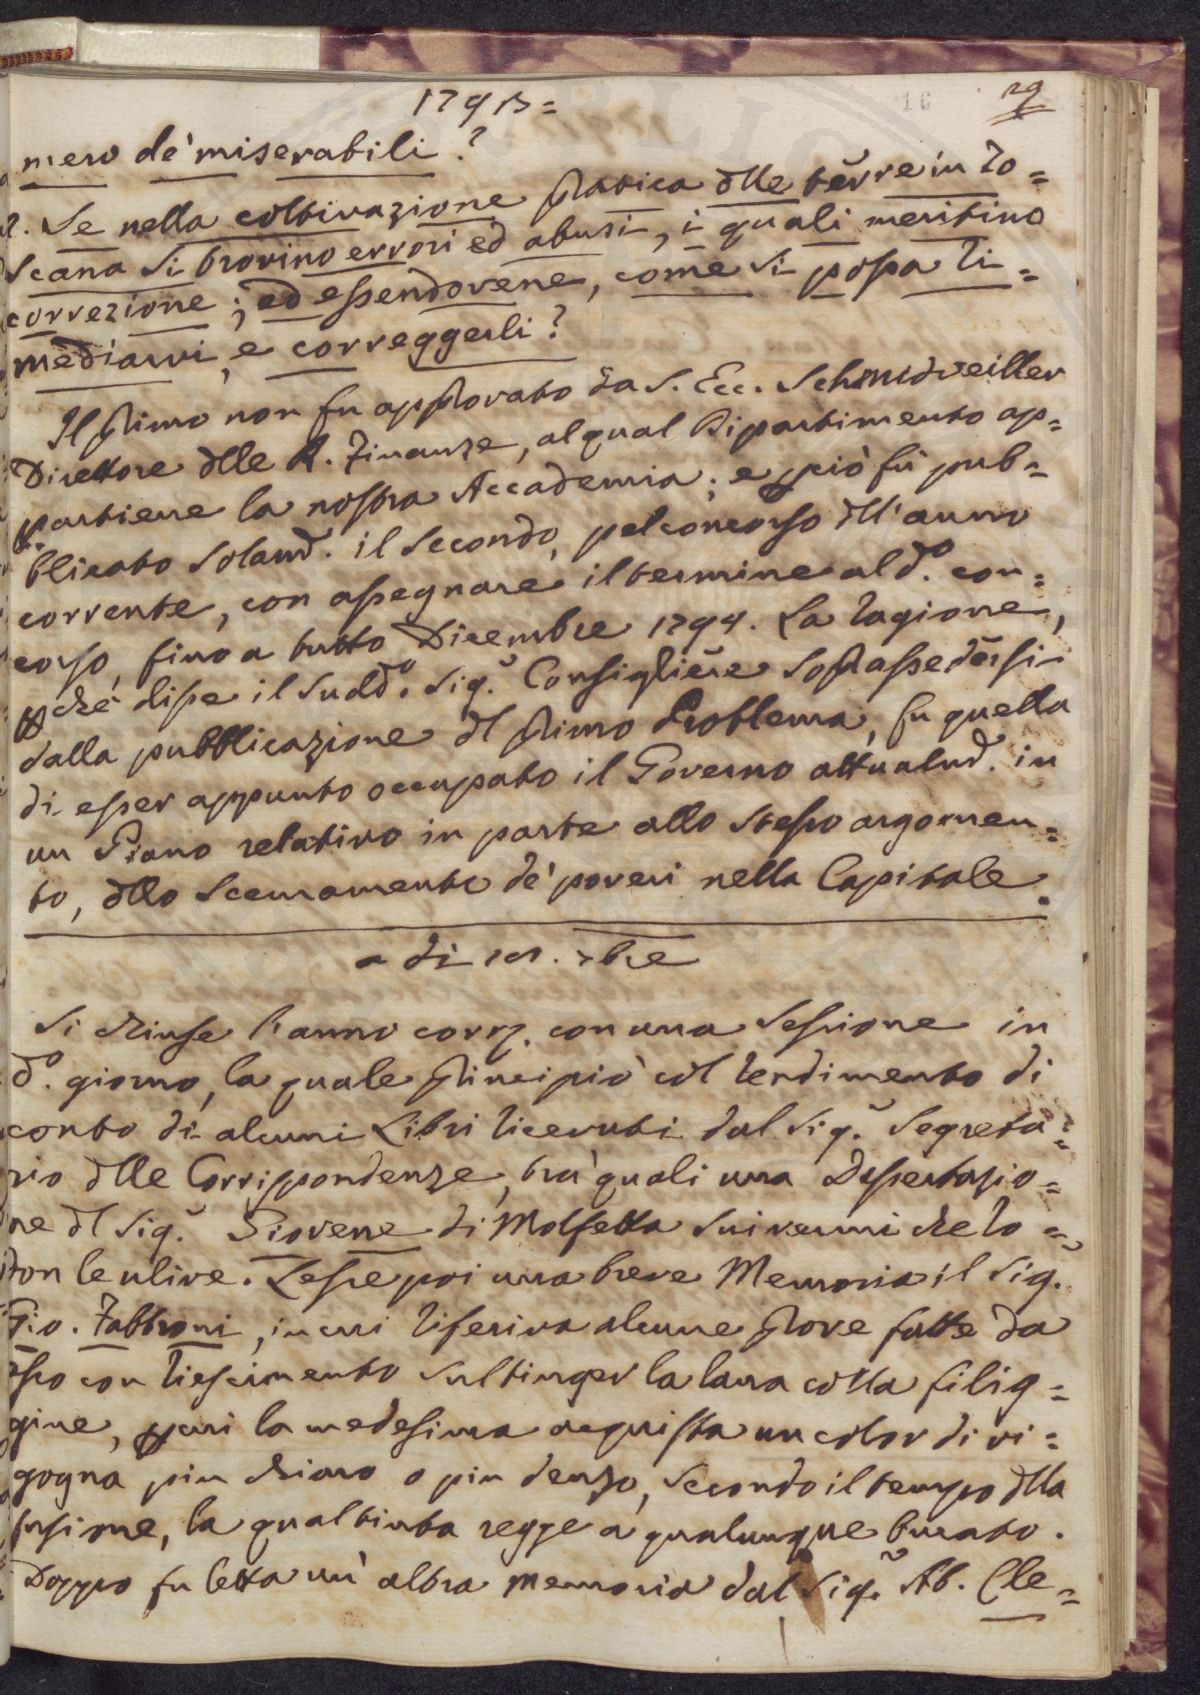 1793=
29
16
mero de' miserabili?
2. Se nella coltivazione pratica dlle terre in To=
scana si trovino errori ed abusi, i quali meritino
correzione; ed essendovene, come si possa ri=
mediarvi, e correggerli?
Il primo non fu approvato da S. Ecc. Schmidveiller
Direttore dlle R. Finanze, al qual Dipartimento ap=
partiene la nostra Accademia; e perciò fù pub=
blicato solamd. il secondo, pel concorso dll'anno
corrente, con assegnare il termine al do. con=
corso, fino a tutto Dicembre 1794. La ragione,
pche disse il sudd.o Sig.r Consigliere soprassedersi
dalla pubblicazione dl primo Problema, fu quella
di esser appunto occupato il Governo attualmd. in
un Piano relativo in parte allo stesso argomen=
to, dllo scemamento de' poveri nella Capitale.
a di 18. xbre
Si chiuse l'anno corr. con una Sessione in
do. giorno, la quale principiò col rendimento di
conto di alcuni Libri ricevuti dal Sig.r Segreta=
rio dlle Corrispondenze, tra' quali una Dissertazio=
ne dl Sig.r Giovene di Molfetta sui vermi che ro=
don le ulive. Lesse poi una breve Memoria il Sig.
Gio. Fabbroni, in cui riferiva alcune prove fatte da
esso con riescimento sul tinger la lana colla filig=
gine, per cui la medesima acquista un color di vi=
gogna piu chiaro o piu denso, secondo il tempo dlla
fusione, la qual tinta regge a qualunque bucato.
Doppo fu letta un' altra memoria dal Sig.r Ab. Cle=